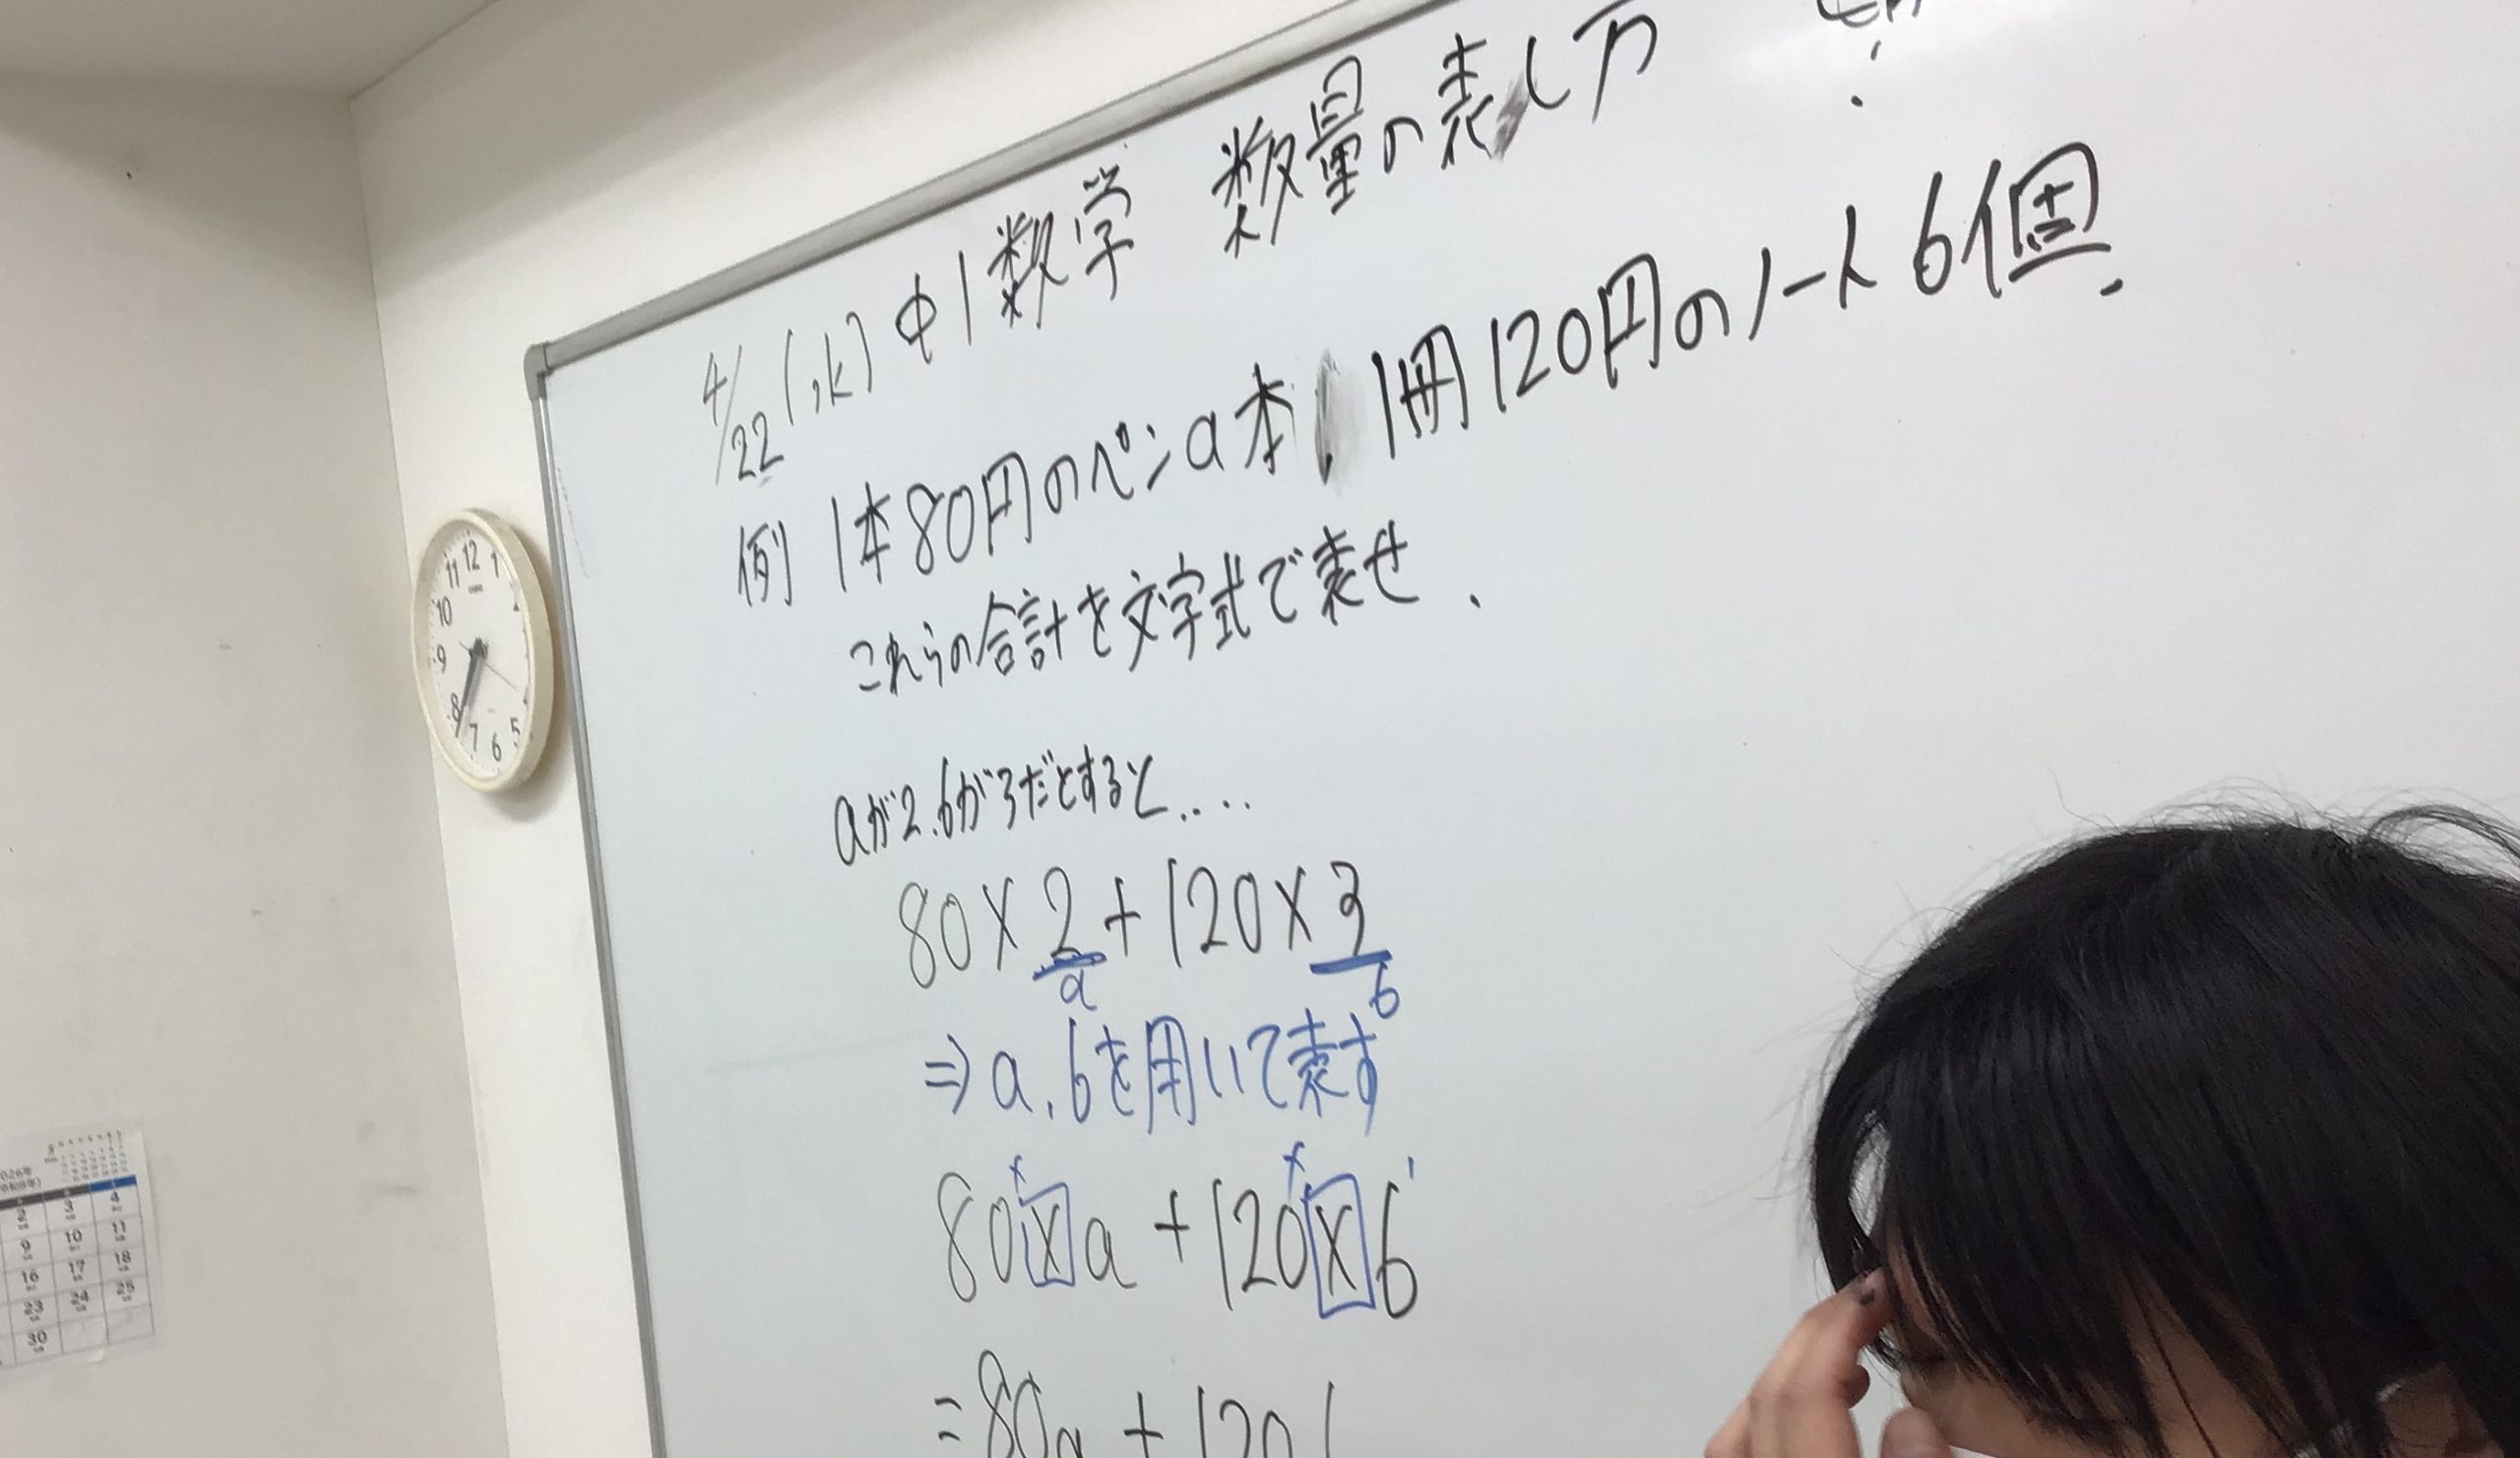 4/22(水) 中1数学 数量の表し方
例 1本80円のペンa本, 1冊120円のノートb個.
これらの合計を文字式で表せ.
aが2.bが3だとすると....
80×2+120×3
a b
⇒a.bを用いて表す
80×a+120×b
=80a+120
12 1
11
10
9
8
7 6 5
3
2026年
4
2 3 4
9 10 11
16 17 18
23 24 25
30